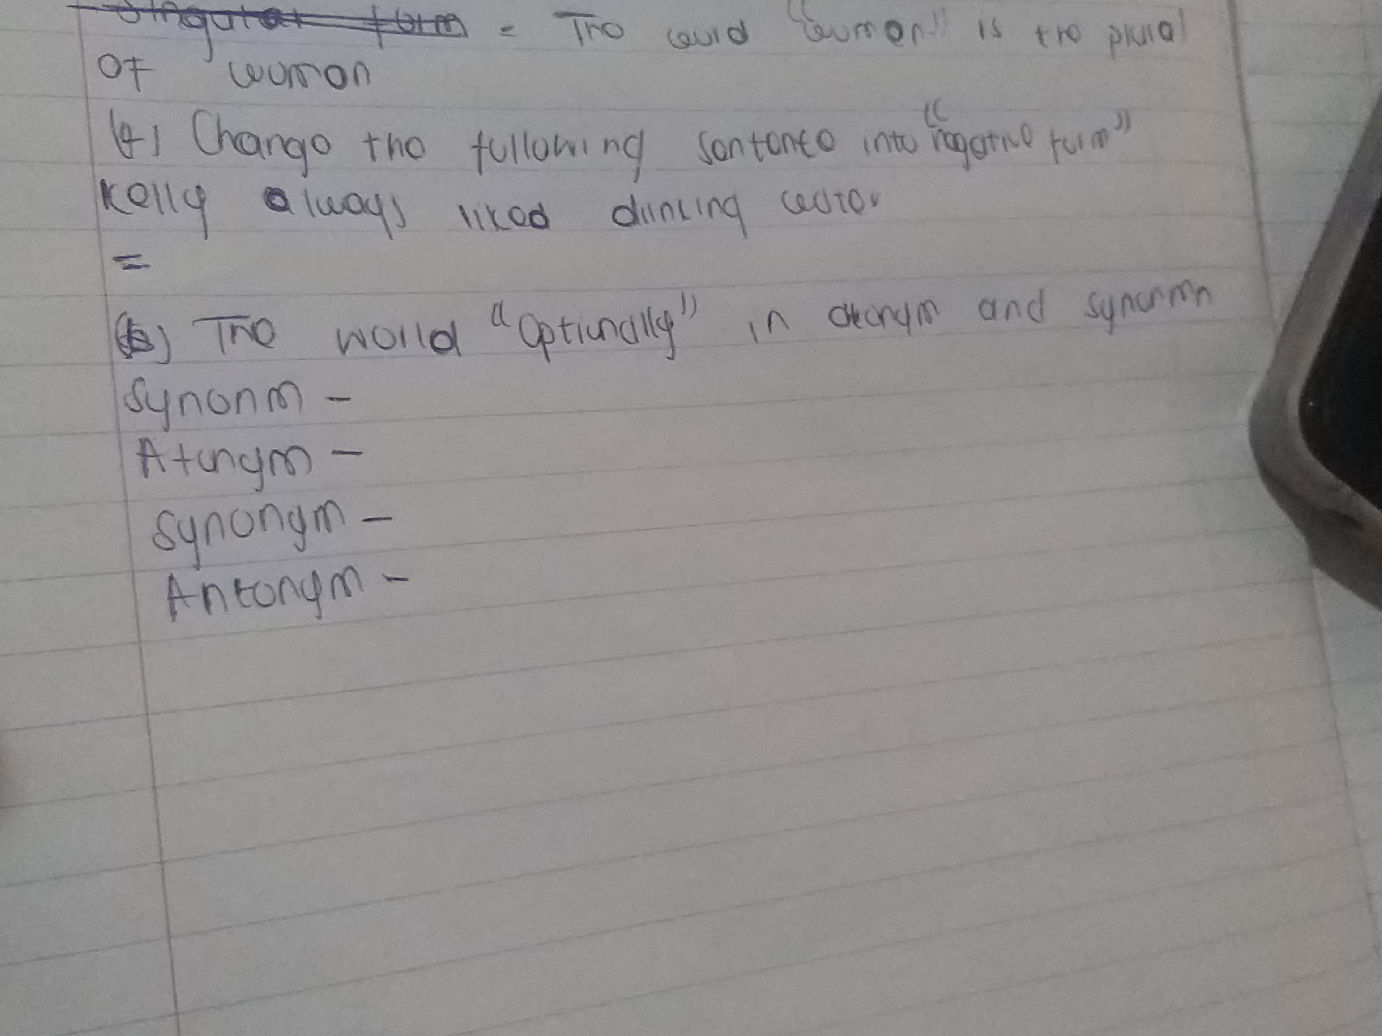 singular form = The word "women" is the plural
of woman
(4) Change the following sentence into "negative form"
Kelly always liked drinking water
=
(5) The world "Optionally" in and
Synonm -
Atonym -
Synonym -
Antonym -